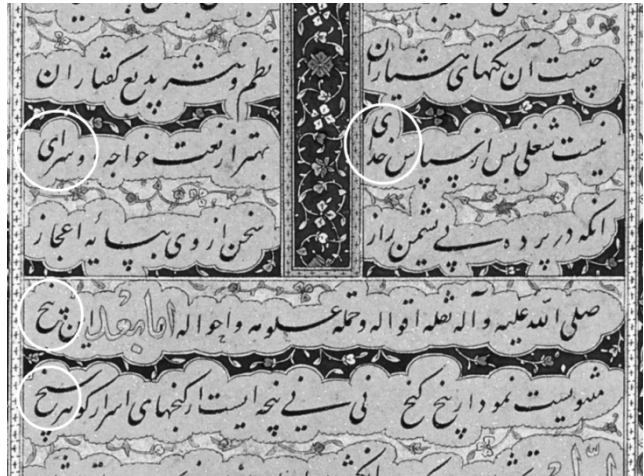 چیست آن نکتهای هشیاران نظم و نثر بدیع گفتاران
نیست شغلی پس از سپاس خدای بهتر از نعت خواجه دو سرای
انکه در پرده نشیمن راز سخن از وی بپایه اعجاز
صلی الله علیه و آله نقله اقواله و حمله علومه و احواله اما بعد این پنج
مثنویست نمودار پنج گنج نی نی پنجه ایست از گنجهای اسرار گوهر سنج